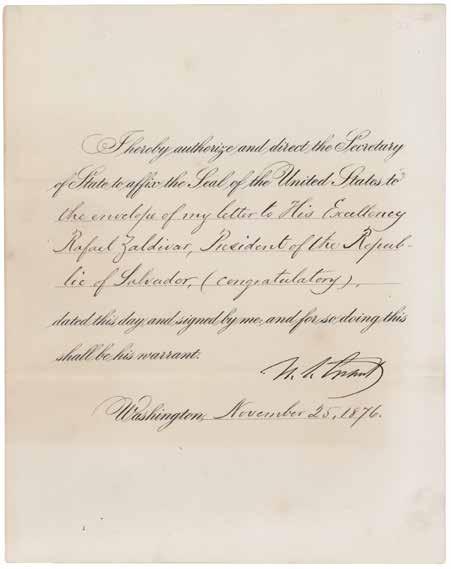 I hereby authorize and direct the Secretary
of State to affix the Seal of the United States to
the envelope of my letter to His Excellency
Rafael Zaldivar, President of the Repub-
lic of Salvador, (congratulatory),
dated this day, and signed by me; and for so doing this
shall be his warrant.
U. S. Grant
Washington, November 25, 1876.